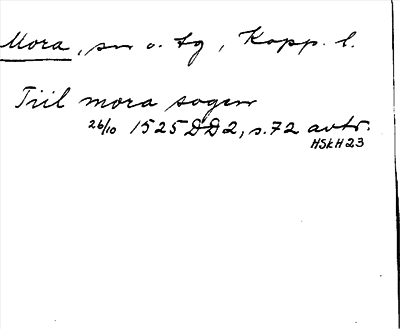 Mora, sn o. tg, Kopp. l.
Tiil mora sogen
26/10 1525 DD2, s.72 avtr.
HSkH23